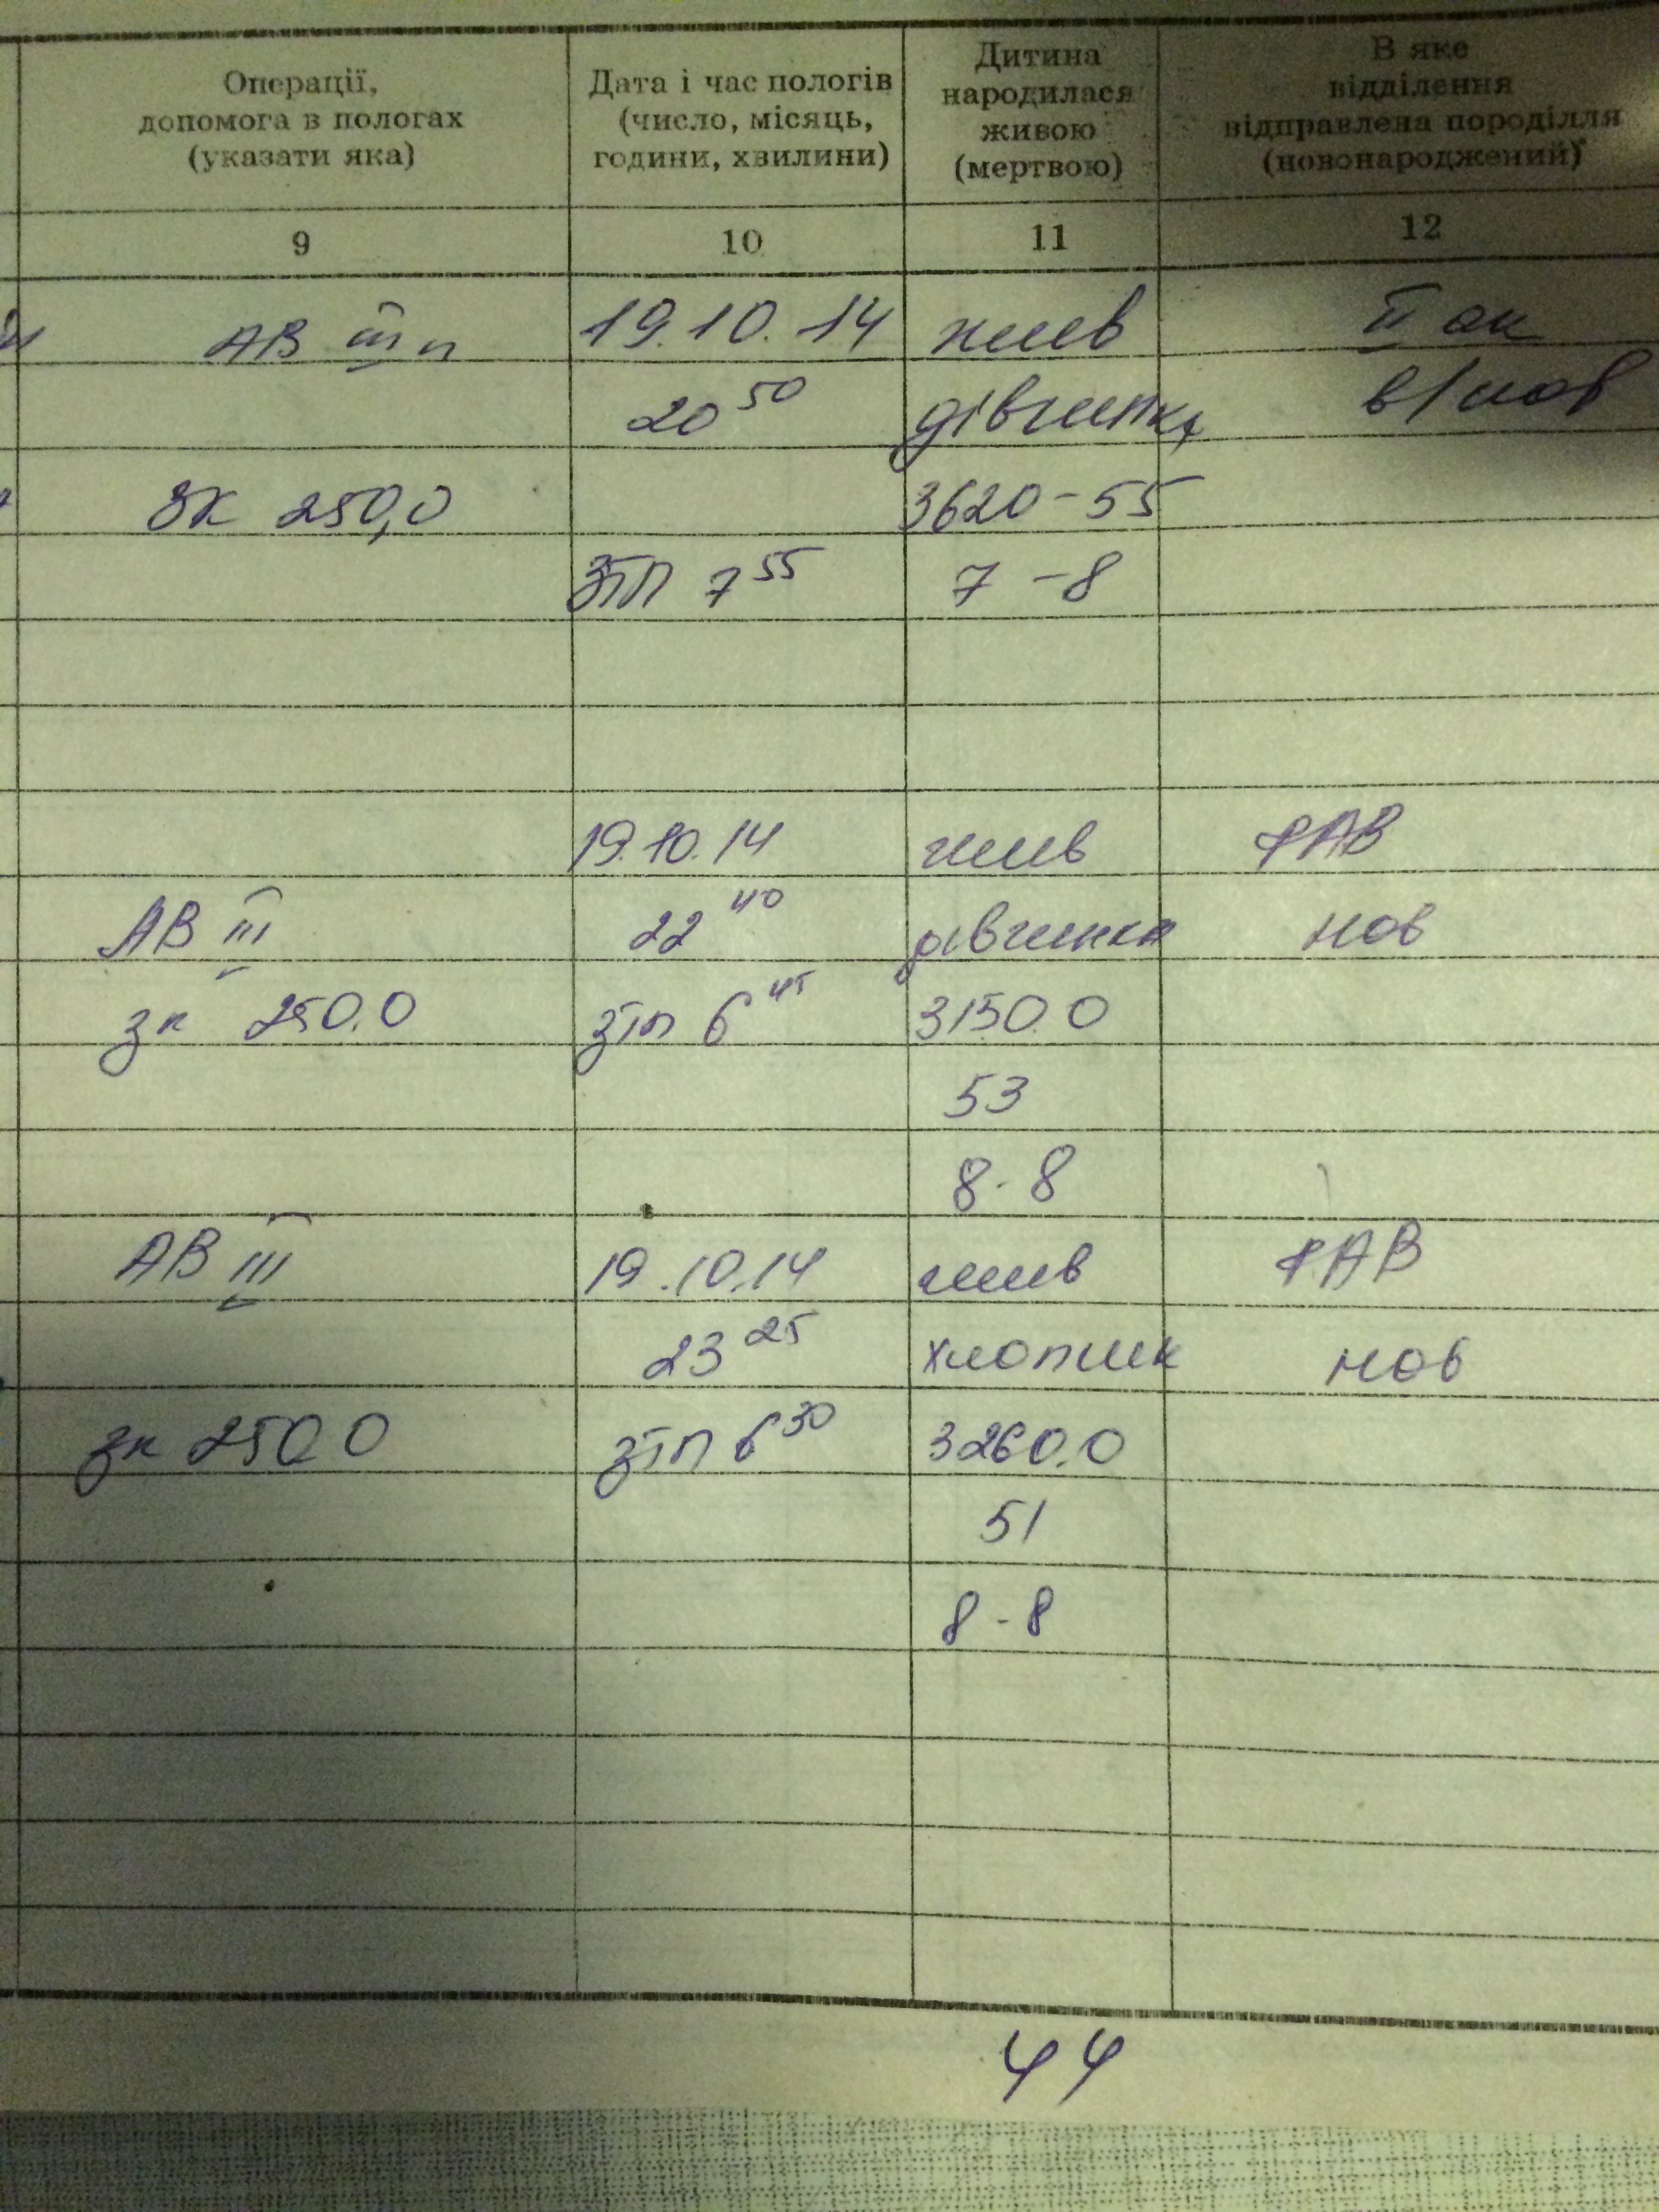 Операції,
допомога в пологах
(указати яка)
Дата і час пологів
(число, місяць,
години, хвилини)
Дитина
народилася
живою
(мертвою)
В яке
відділення
відправлена породілля
(новонароджений)
9 10 11 12
АВ III п 19.10.14 жив II ак
20 50 дівчинка в/нов
ЗК 250,0 3620-55
ЗТП 7 55 7-8
19.10.14 жив ФАВ
АВ III 22 40 дівчинка нов
зк 250.0 зтп 6 45 3150.0
53
8-8
АВ III 19.10.14 жив ФАВ
23 25 хлопчик нов
зк 250.0 зтп 6 30 3260.0
51
8-8
44